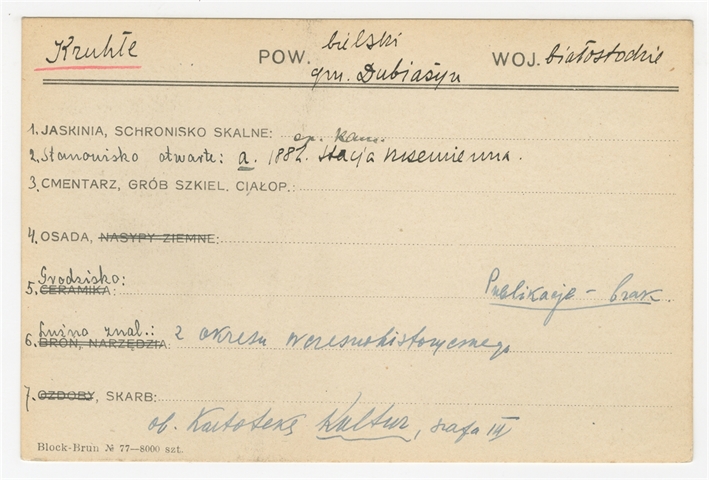 Kruhłe POW. bielski WOJ. białostockie
gm. Dubiażyn
1. JASKINIA, SCHRONISKO SKALNE: ep. kam.
2. Stanowisko otwarte: a. 1882. Stacja krzemienna.
3. CMENTARZ, GRÓB SZKIEL. CIAŁOP.:
4. OSADA, NASYPY ZIEMNE:
Grodzisko:
5. CERAMIKA: Publikacje – brak.
Luźno znal.: z okresu wczesnohistorycznego
6. BROŃ, NARZĘDZIA
7. OZDOBY, SKARB:
ob. Kartoteka Kultur, szafa III
Block-Brun № 77—8000 szt.